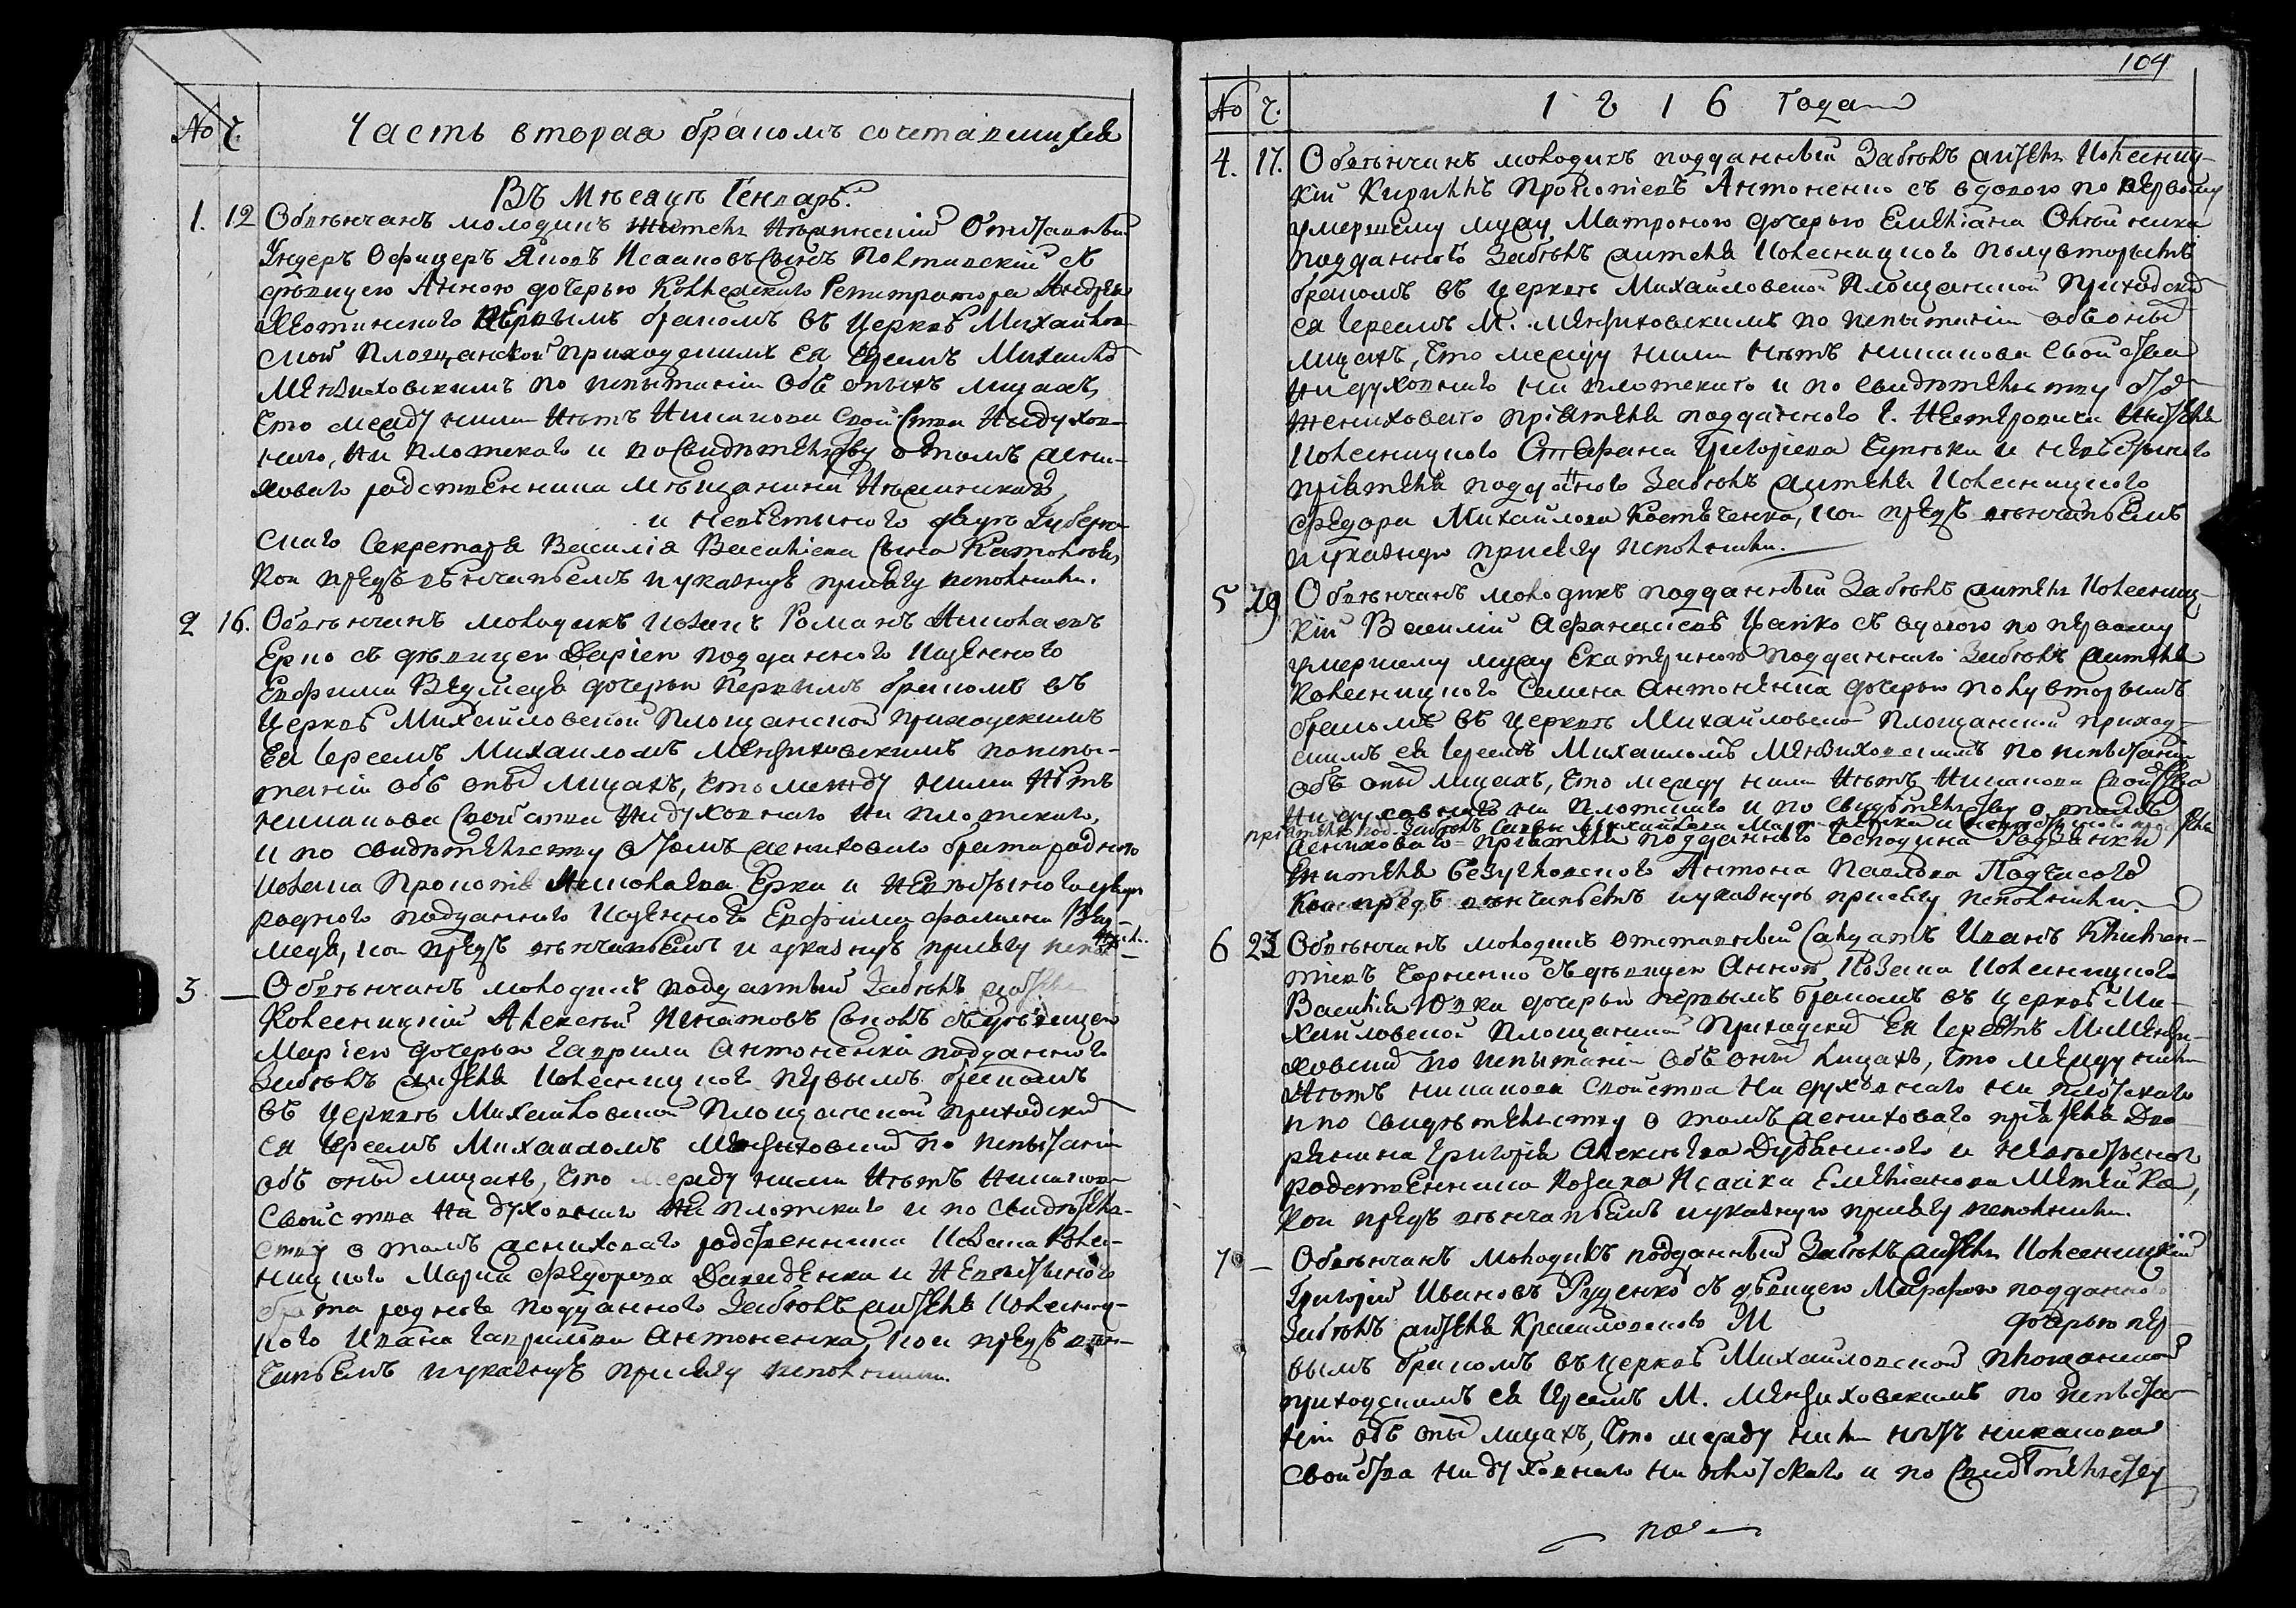 № Ч. Часть вторая бракомъ сочетавшихся
Въ Мѣсяцѣ Генварѣ.
1. 12 Обвѣнчанъ молодикъ житель Нѣжинскій Отставный
Ундеръ Офицеръ Яковъ Исааковъ Сынъ Полтавскій съ
дѣвицею Анною дочерью Коллежскаго Регитратора Андрея
первымъ бракомъ въ Церквѣ Михайлов-
ской Площанской приходскимъ ея Іереемъ Михаиломъ
Мензиховскимъ по испытаніи объ оныхъ лицахъ,
что между ними нѣтъ никакова свойства ни духов-
наго, ни плотскаго и по свидѣтельству о томъ жени-
ховаго родственника мѣщанина Нѣжинскаго,
и невѣстиного Губерн-
скаго Секретаря Василія Васильева сына
кои предъ вѣнчаніемъ и указную присягу исполнили.
2 16. Обвѣнчанъ молодикъ козакъ Романъ Николаевъ
Ерко съ дѣвицею Даріею подданного
Евфима Ведмедя дочерью первымъ бракомъ въ
Церквѣ Михайловской Площанской приходскимъ
ея Іереемъ Михаиломъ Мензиховскимъ по испы-
таніи объ оныхъ лицахъ, что между ними нѣтъ
никакова свойства ни духовнаго ни плотскаго,
и по свидѣтельству о томъ жениховаго брата родного
козака Прокопія Николаева Ерка и невѣстыного
родного подданного Евфима фамилии Вед-
медя, кои предъ вѣнчаніемъ и указную присягу исполнили.
3 — Обвѣнчанъ молодикъ подданный Забѣлъ житель
Колесницкій Алексѣй Игнатовъ сынъ съ дѣвицею
Маріею дочерью Гаврила Антоненка подданного
Забѣлъ жителя Колесницкого первымъ бракомъ
въ Церквѣ Михайловской Площанской приходскимъ
ея Іереемъ Михаиломъ Мензиховскимъ по испытаніи
объ оныхъ лицахъ, что между ними нѣтъ никакова
свойства ни духовнаго ни плотскаго и по свидѣтель-
ству о томъ жениховаго родственника козака Колес-
ницкого Марка Федорова Давиденка и невѣстыного
брата родного подданного Забѣлъ жителя Колесниц-
кого Ивана Гаврилова Антоненка, кои предъ вѣн-
чаніемъ и указную присягу исполнили.
104
№ Ч. 1816 Года
4. 17. Обвѣнчанъ молодикъ подданный Забѣлъ житель Колесниц-
кій Кириллъ Прокопіевъ Антоненко съ вдовою по первому
умершему мужу Матроною дочерью Емеліана Олѣйника
подданного Забѣлъ жителя Колесницкого полувторымъ
бракомъ въ Церквѣ Михайловской Площанской приходскимъ
ея Іереемъ М. Мензиховскимъ по испытаніи объ оныхъ
лицахъ, что между ними нѣтъ никакова свойства
ни духовнаго ни плотскаго и по свидѣтельству о томъ
жениховаго пріятеля подданного г. жителя
Колесницкого Стефана Григоріева и невѣстыного
пріятеля подданного Забѣлъ жителя Колесницкого
Федора Михайлова Костеченка, кои предъ вѣнчаніемъ
и указную присягу исполнили.
5 19 Обвѣнчанъ молодикъ подданный Забѣлъ житель Колесниц-
кій Василій Афанасіевъ съ вдовою по первому
умершему мужу Екатериною подданного Забѣлъ жителя
Колесницкого Семена Антоненка дочерью полувторымъ
бракомъ въ Церквѣ Михайловской Площанской приход-
скимъ ея Іереемъ Михаиломъ Мензиховскимъ по испытаніи
объ оныхъ лицахъ, что между ними нѣтъ никакова свойства
ни духовнаго ни плотскаго и по свидѣтельству о томъ
пріятеля под. Забѣлъ Саввы Михайлова
жениховаго пріятеля подданного Господина
жителя Антона Павлова
кои предъ вѣнчаніемъ и указную присягу исполнили.
6 23 Обвѣнчанъ молодикъ отставный Салдатъ Иванъ
съ дѣвицею Анною козака Колесницкого
Василія дочерью первымъ бракомъ въ Церквѣ Ми-
хайловской Площанской приходскимъ ея Іереемъ М. Мензи-
ховскимъ по испытаніи объ оныхъ лицахъ, что между ними
нѣтъ никакова свойства ни духовнаго ни плотскаго
и по свидѣтельству о томъ жениховаго пріятеля Дво-
рянина Григорія Алексѣева и невѣстыного
родственника козака Исайка Емеліанова
кои предъ вѣнчаніемъ и указную присягу исполнили.
7 — Обвѣнчанъ молодикъ подданный Забѣлъ житель Колесницкій
Григорій Ивановъ Руденко съ дѣвицею Марфою подданного
Забѣлъ жителя М дочерью пер-
вымъ бракомъ въ Церквѣ Михайловской Площанской
приходскимъ ея Іереемъ М. Мензиховскимъ по испыта-
ніи объ оныхъ лицахъ, что между ними нѣтъ никакова
свойства ни духовнаго ни плотскаго и по свидѣтельству
по